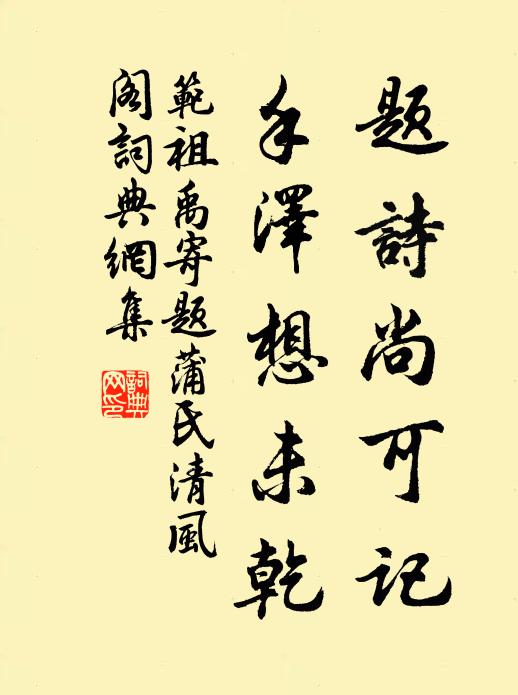 题詩尚可记
手澤想未乾
範祖禹寄题蒲氏清風
阁詞典網集
詞典网印